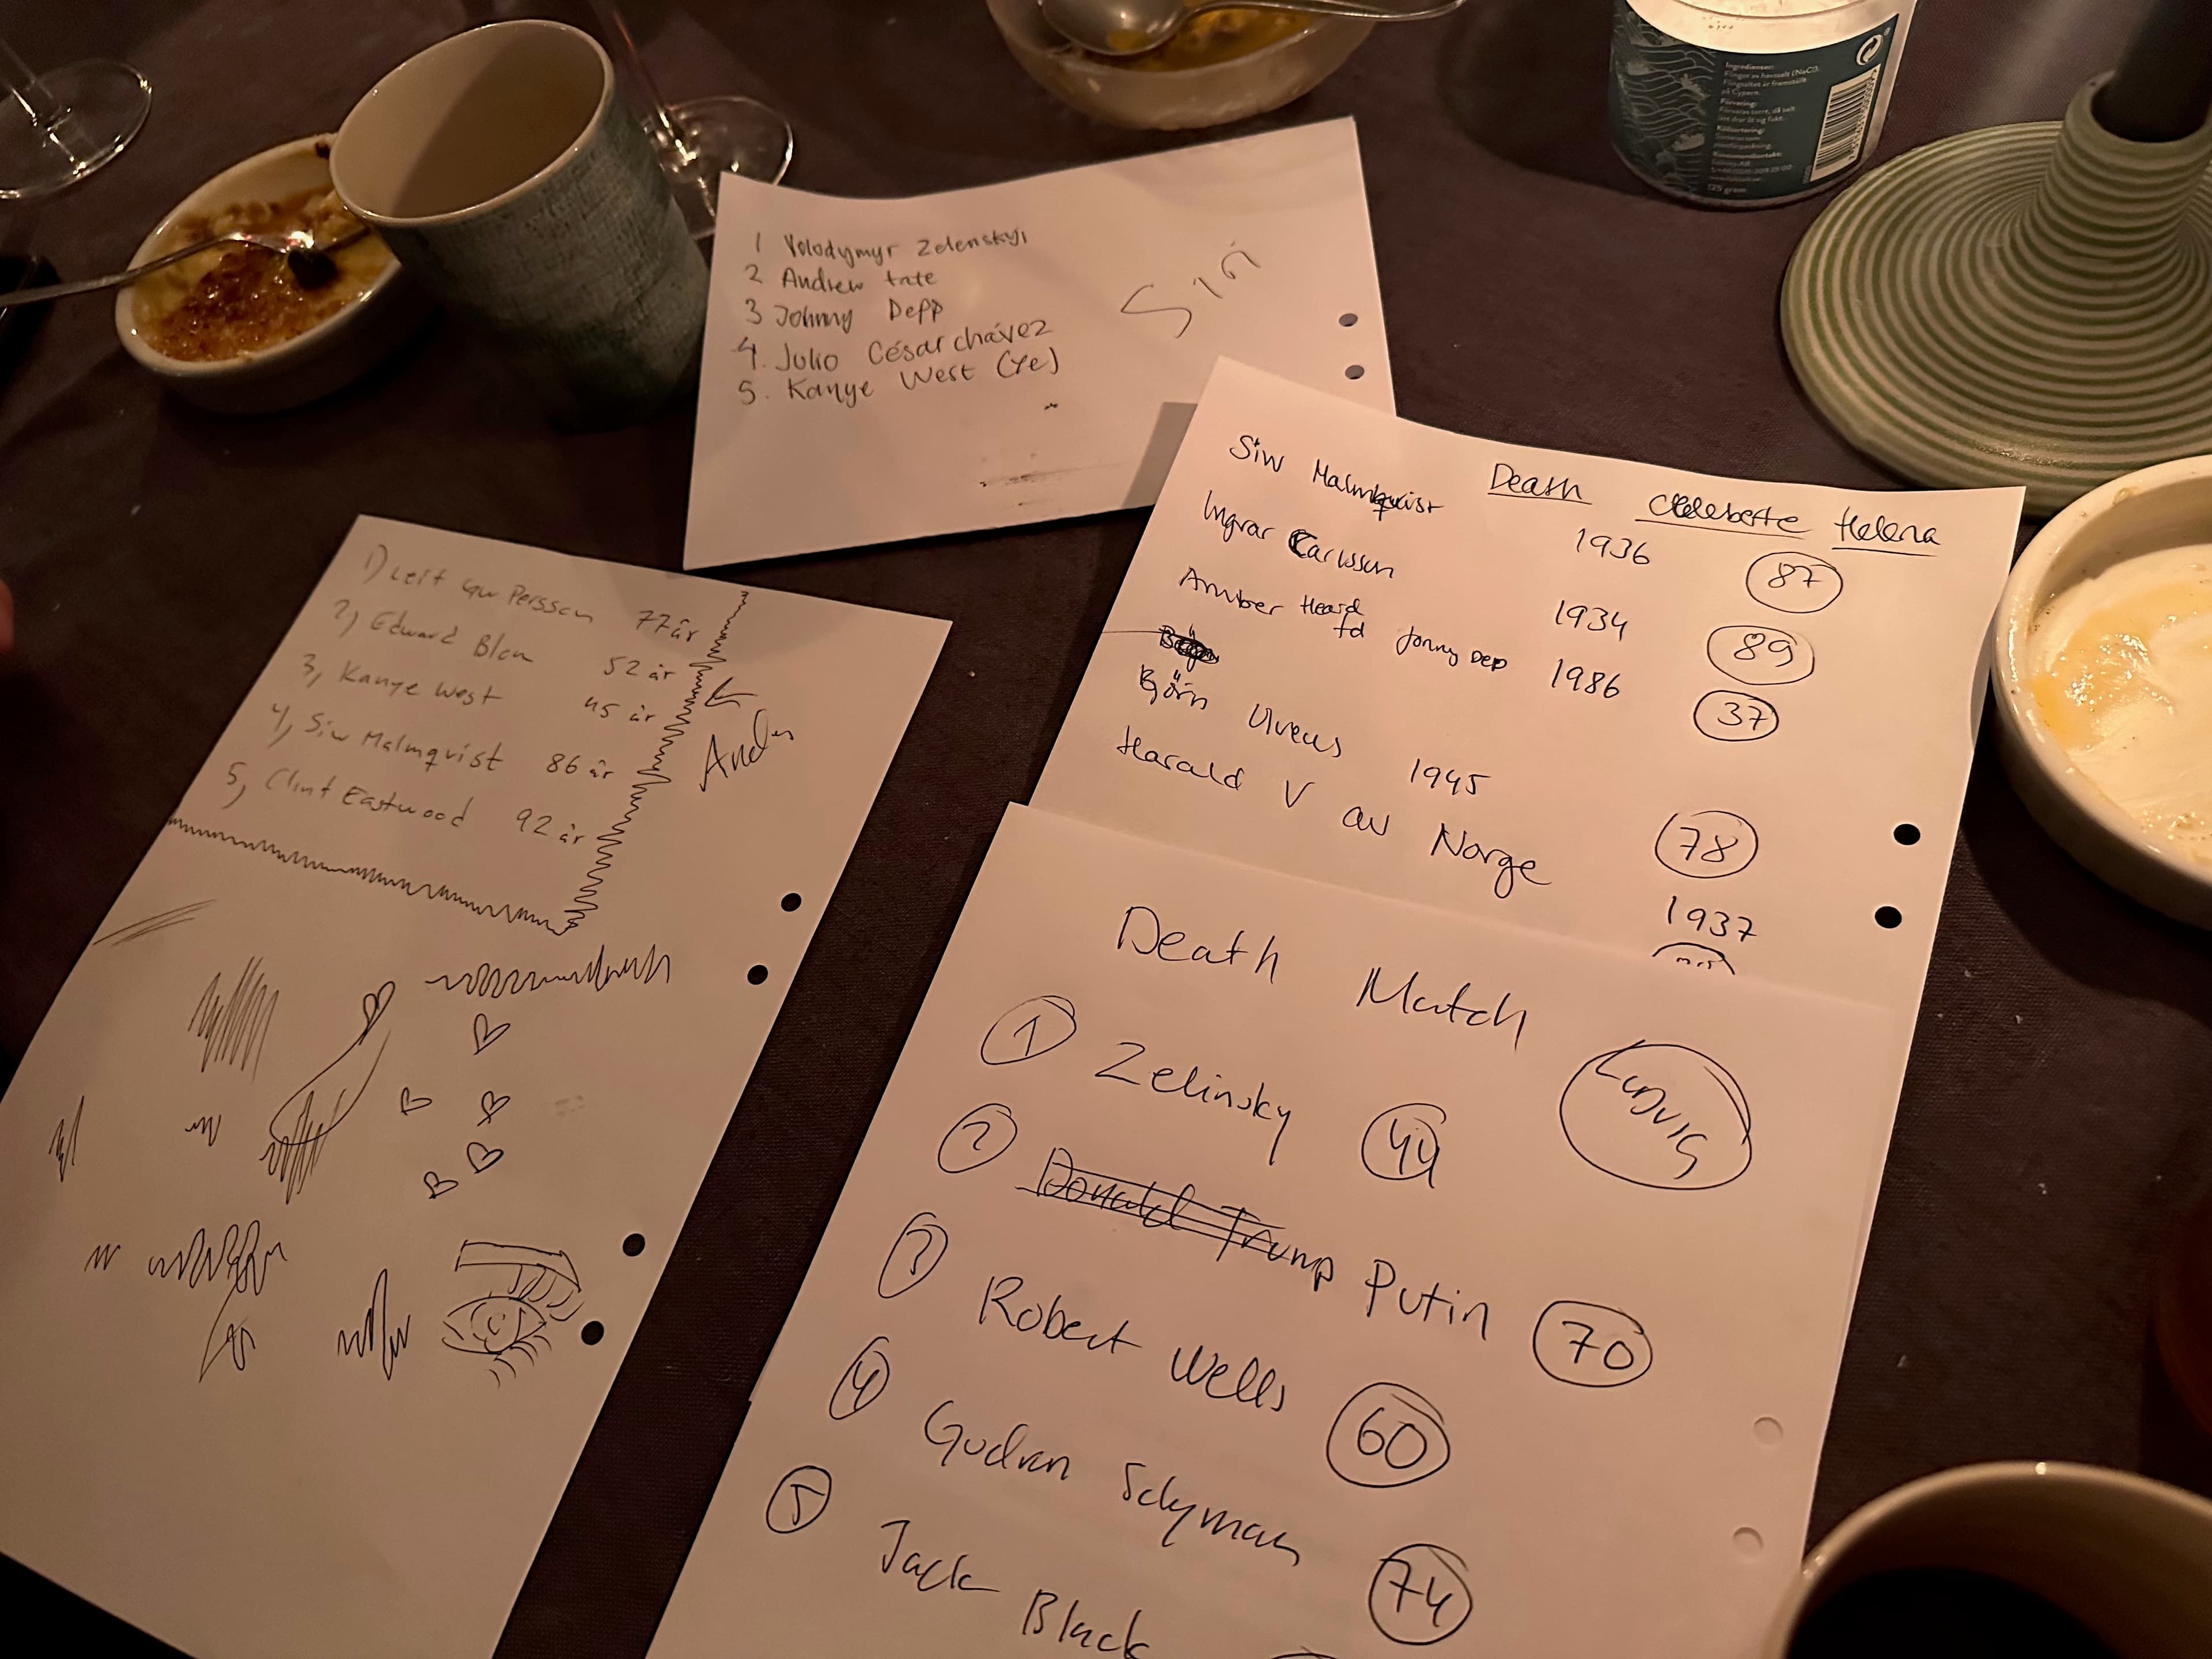 Ingredienser:
Flingor av havssalt (NaCl).
Flingsaltet är framställt
på Cypern.
Förvaring:
Förvaras torrt, då salt
lätt drar åt sig fukt.
Källsortering:
Konsumentkontakt:
125 gram
1 Volodymyr Zelenskyi
2 Andrew tate
3 Johnny Depp
4. Julio César chávez
5. Kanye West (Ye)
Death Helena
Siw Malmqvist 1936 87
Ingvar Carlsson 1934 89
Amber Heard
fd Jonny Dep 1986 37
Björn Ulveus 1945 78
Harald V av Norge
1937
1) Leif GW Persson 77 år
2) Edward Blom 52 år
3, Kanye West 45 år
4) Siw Malmqvist 86 år
5, Clint Eastwood 92 år
Death Match
LUDVIG
1 Zelinsky 44
2 Donald Trump Putin 70
3 Robert Wells 60
4 Gudran Schyman 74
5 Jack Black